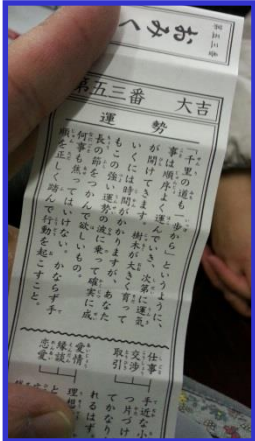 第五三番
おみく
第五三番 大吉
運勢
「千里の道も一歩から」というように、
事は順序よく運んでいき、次第に運気
が開けてきます。樹木が大きく育って
いくには時間がかかりますが、あなた
もこの強い運勢の波に乗って確実に成
長の節をつかんで欲しいもの。
何事も焦ってはいけない。かならず手
順を正しく踏んで行動を起こすこと。
仕事
交渉
取引
手近な小
つ片づけ
てかなり
れるはず。
愛情
縁談
恋愛
理想